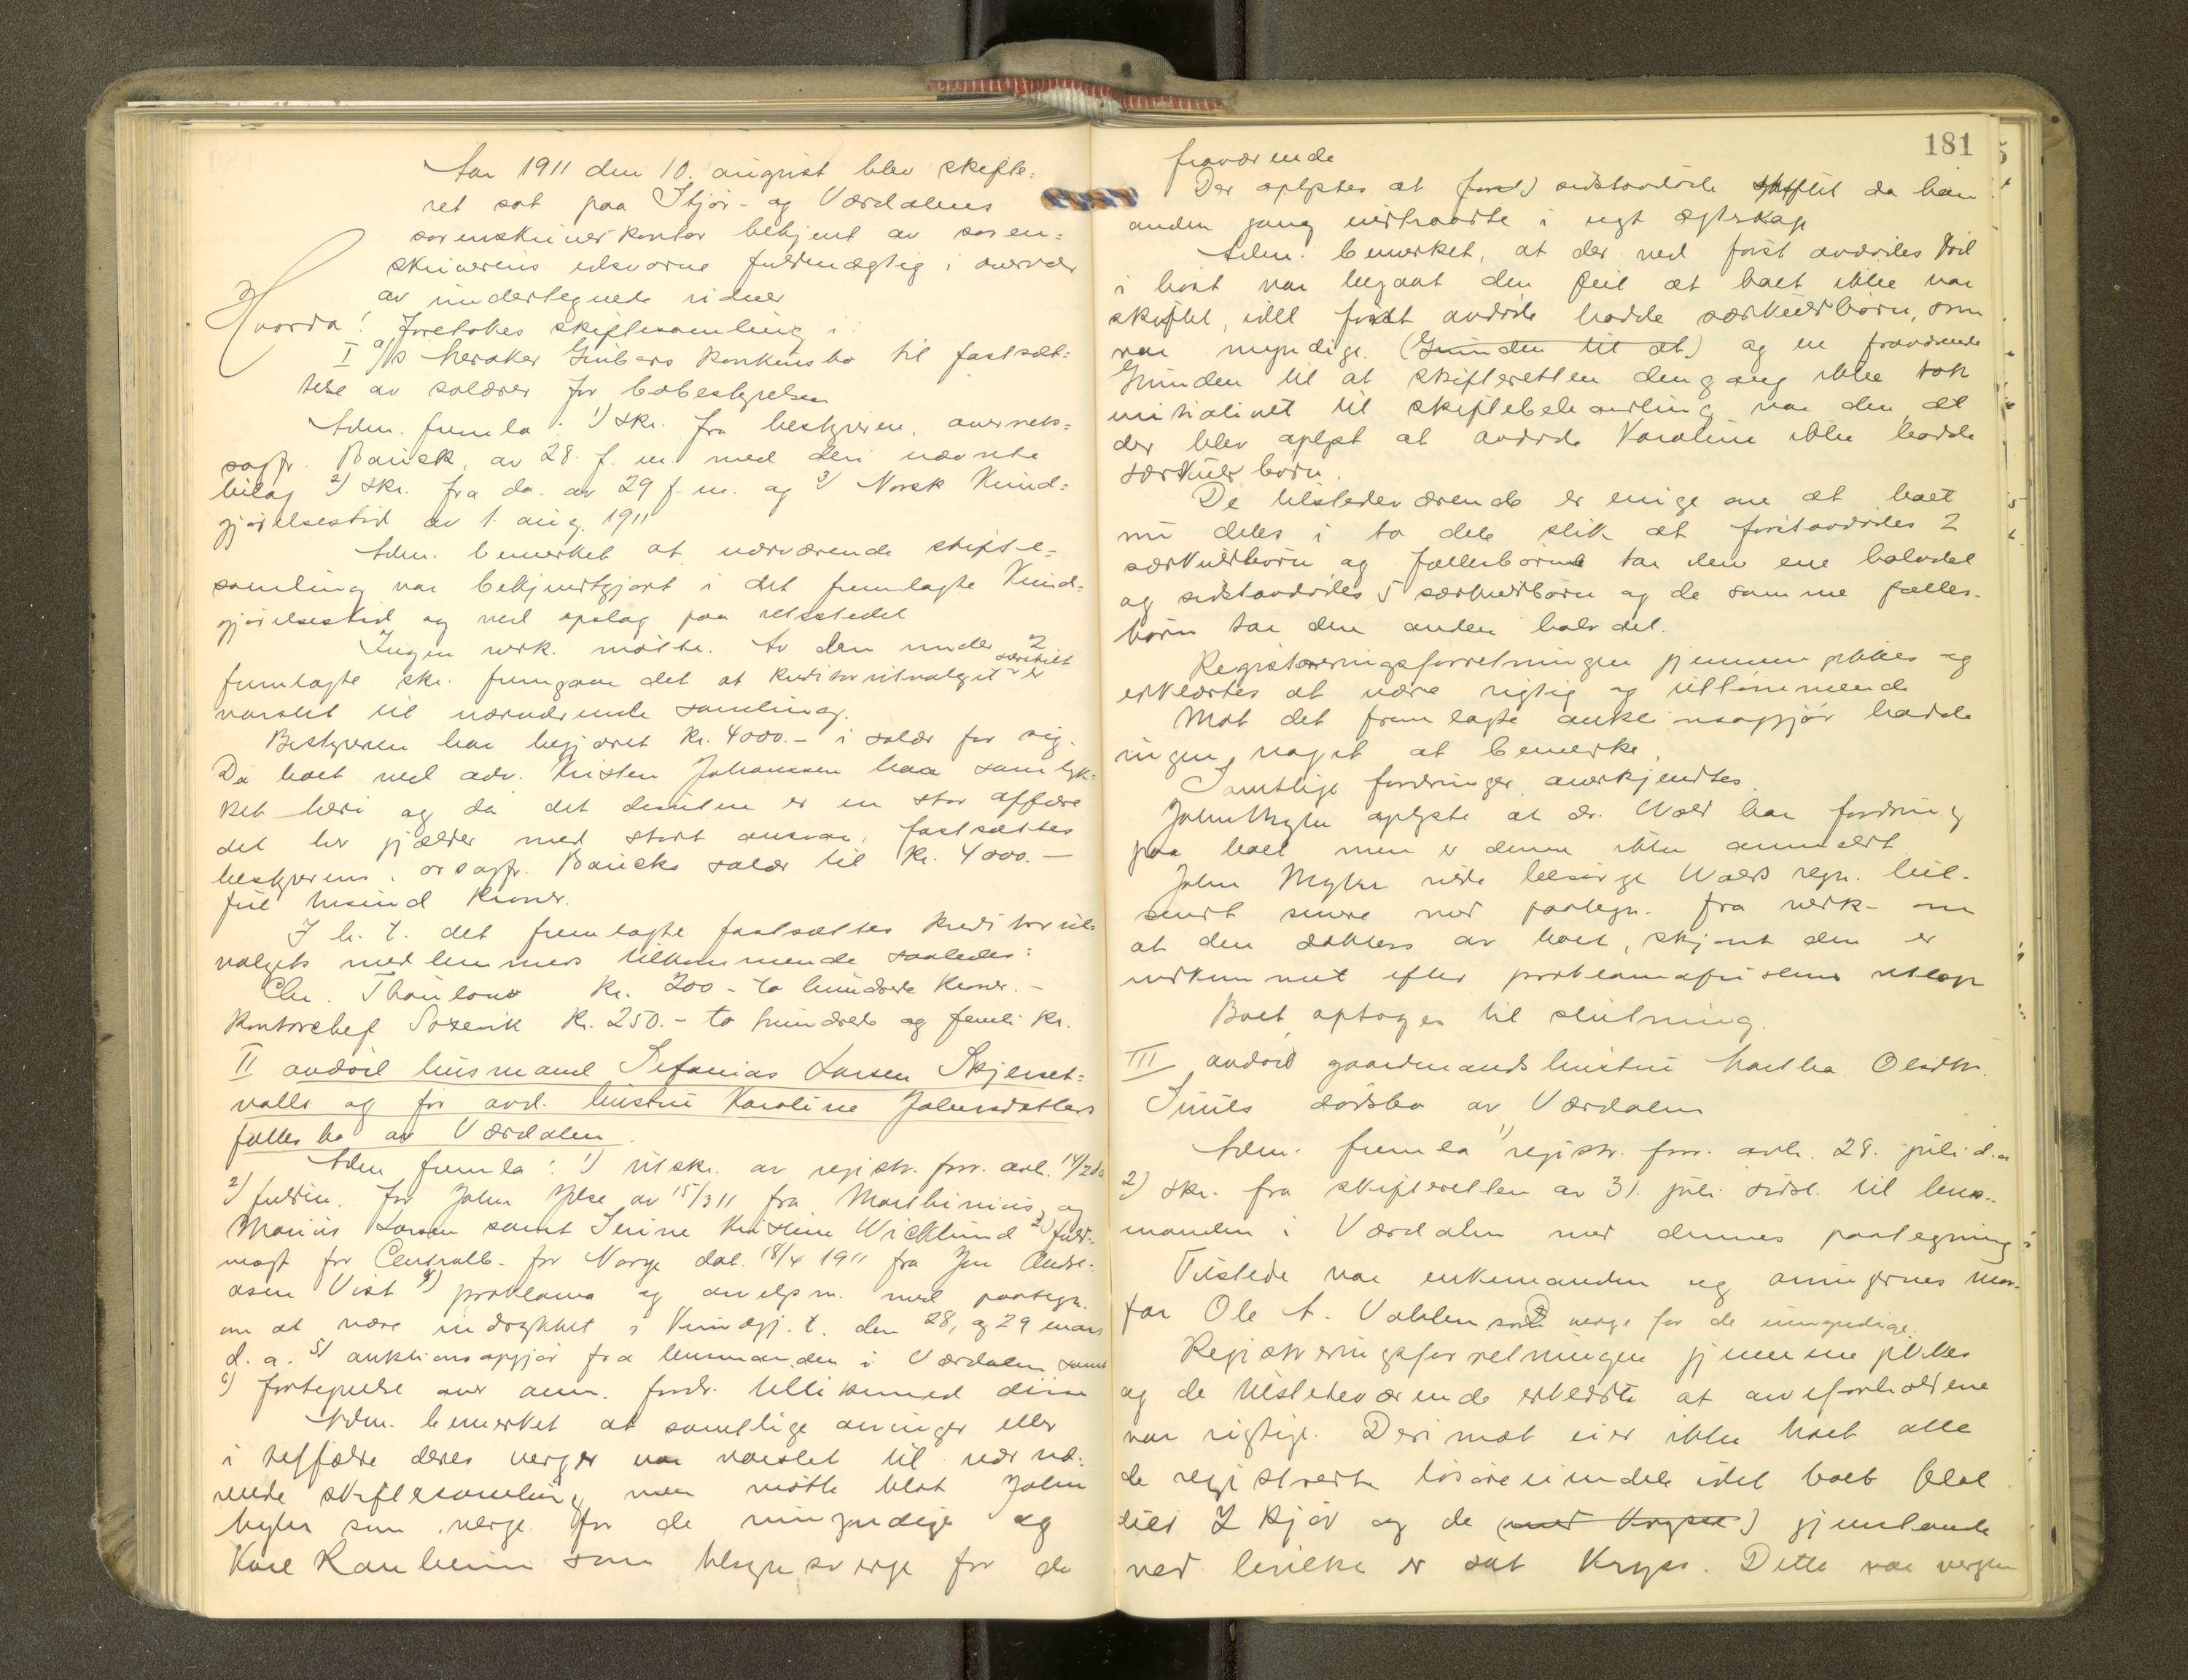 Aar 1911 den 10. august blev skifte:
ret sat paa Stjør- og Værdalens
sorenskriverkontor betjent av soren:
skriverens edsvorne fuldmægtig i overvær
av undertegnede vidner
Hvorda! Foretokes skiftesamling i
I A/S Meraker Grubers konkursbo til fastsæt:
telse av salærer for bobestyrelsen
Adm. fremla: 1) skr. fra bestyreren, overrets:
sagf. Bauck, av 28. f. m. med deri nævnte
bilag 2) skr. fra do. av 29 f. m. og 3) Norsk Kund:
gjørelsestid av 1. aug. 1911
Adm. bemerket at nærværende skifte:
samling var bekjendtgjort i det fremlagte Kund:
gjørelsestid og ved opslag paa retsstedet
Ingen vedk. møtte. Av den under 2
fremlagte skr. fremgaar det at kreditorutvalget er særskilt
varslet til nærværende samling.
Bestyreren har begjæret kr. 4000.- i salær for sig.
Da boet ved adv. Kristen Johanssen har samtyk:
ket heri og da det desuten er en stor affære
det her gjælder med stort ansvar, fastsættes
bestyrerens, orsagf. Baucks salær til kr. 4000.-
fire tusind kroner.
I h. t. det fremlagte fastsættes kreditorut-
valgets medlemmers tilkommende saaledes:
Chr. Thaulow kr. 200 - to hundrede kroner. -
Kontorchef kr. 250.- to hundrede og femti kr.
II avdød husmand Sefanias Larsen Skjerset:
valls og før avd. hustru Karoline Johnsdatters
fælles bo av Værdalen.
Adm fremla: 1) utskr. av registr. forr. avh. 14/2 da
2) fuldm. for John Ydse av 15/3 11 fra Marthinius, og
Marius Larsen samt Serine Kristine Wicklund 3) fuld-
magt for Centralb. for Norge dat. 18/4 1911 fra Jon Andre-
asen Vist 4) proklama og avertissm. med paategn.
om at være indrykket i Kundgj. t. den 28, og 29 mars
d. a. 5) auktionsopgjør fra lensmanden i Værdalen samt
6) fortegnelse over anm. fordr. tillikemed disse
Adm. bemerket at samtlige arvinger eller
i tilfælde deres verger var varslet til nærvæ:
rende skiftesamling men møtte blot John
Myhr som verge for de umyndige og
Karl Ranheim som tilsynsverge for de
181
fraværende
Der oplystes at (først) sidstavdøde skiftet da han
anden gang indtraadte i nyt ægteskap
Adm. bemerket, at der ved først avdødes død
i høst var begaat den feil at boet ikke var
skiftet, idet først avdøde hadde særkuldbørn, som
var myndige. (Grunden til at) og en fraværende
Grunden til at skifteretten dengang ikke tok
initiativet til skiftebehandling var den at
der blev oplyst at avdøde Karoline ikke hadde
særkuldbørn.
De tilstedeværende er enige om at boet
nu deles i to dele slik at førstavdødes 2
særkuldbørn og fællesbørnene tar den ene halvdel
og sidstavdødes 5 særkuldbørn og de samme fælles-
børn tar den anden halvdel.
Registreringsforretningen gjennemgikkes og
erklærtes at være rigtig og uttømmende
Mot det fremlagte auktionsopgjør hadde
ingen noget at bemerke.
Samtlige fordringer anerkjendtes.
John Myhr oplyste at dr. Wold har fordring
paa boet men er denne ikke anmeldt
John Myhr vilde besørge Wolds regn. ind-
sendt senere med paategn. fra vedk. om
at den dækkes av boet, skjønt den er
indkommet efter proklamafristens utløp
Boet optages til slutning.
III avdød gaardmandshustru Martha Olsdtr.
dødsbo av Værdalen
Adm. fremla 1) registr. forr. avh. 29. juli d. a
2) skr. fra skifteretten av 31. juli sidst. til lens-
manden i Værdalen med dennes paategning
Tilstede var enkemanden og arvingernes mor-
far Ole A. Vohlen som verge for de umyndige.
Registreringsforretningen gjennemgikkes
og de tilstedeværende erklærte at arveforholdene
var rigtige. Derimot eier ikke boet alle
de registrerte løsøreiendele idet boet blot
eier 2 kjør og de (med kryss) gjenstande
ved hvilke er sat kryss. Dette var vergen